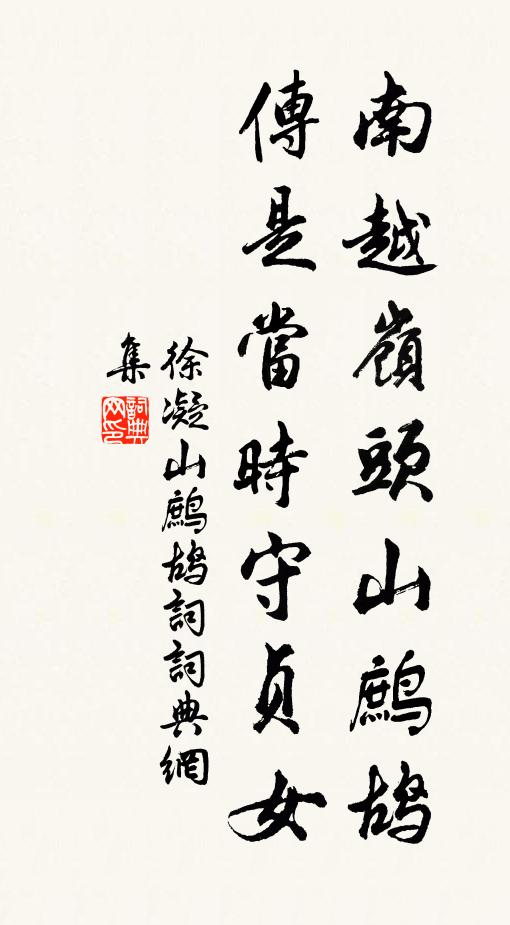 南越嶺頭山鷓鴣
傳是當時守貞女
徐凝山鷓鴣詞詞典網
集
詞典
网印